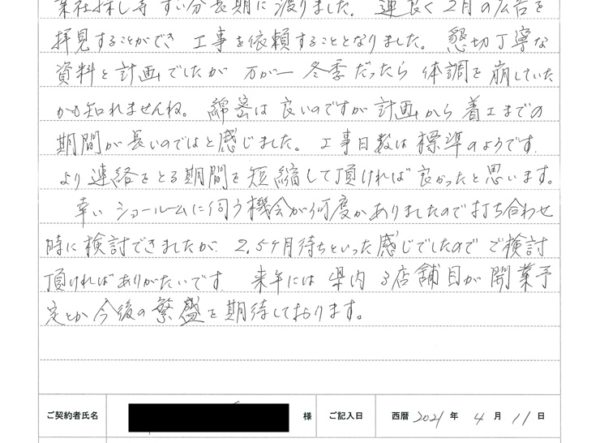 業社探し等 ずい分長期に渡りました。 運良く2月の広告を
拝見することができ 工事を依頼することとなりました。 懇切丁寧な
資料と計画でしたが 万が一 冬季だったら 体調を崩していた
かも知れませんね。 綿密は良いのですが 計画から着工までの
期間が長いのではと感じました。 工事日数は標準のようです。
より連絡をとる期間を短縮して頂ければ良かったと思います。
幸い ショールームに伺う機会が何度かありましたので打ち合わせ
時に検討できましたが、2.5ヶ月待ちといった感じでしたので ご検討
頂ければありがたいです 来年には 県内 3店舗目が開業予
定とか 今後の繁盛を期待しております。
ご契約者氏名 様 ご記入日 西暦 2021 年 4 月 11 日